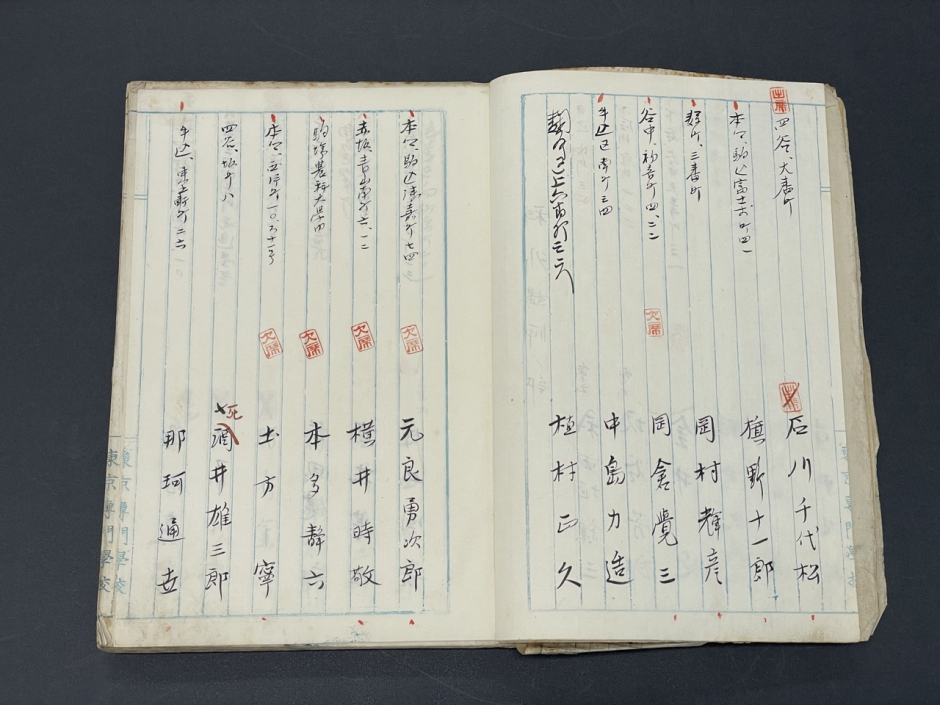 出席
四谷、大番町
石川千代松
本郷、駒込富士前町四一
槙野十一郎
麹町、三番町
岡村輝彦
谷中、初音町四ノ二二
欠席
岡倉覺三
牛込区南町三四
中島力造
植村正久
本郷、駒込浅嘉町七四
欠席
元良勇次郎
赤坂青山南町六ノ一二
欠席
横井時敬
駒場農科大學内
欠席
本多静六
欠席
土方寧
四谷、坂町八
死
酒井雄三郎
那珂通世
東京專門學校